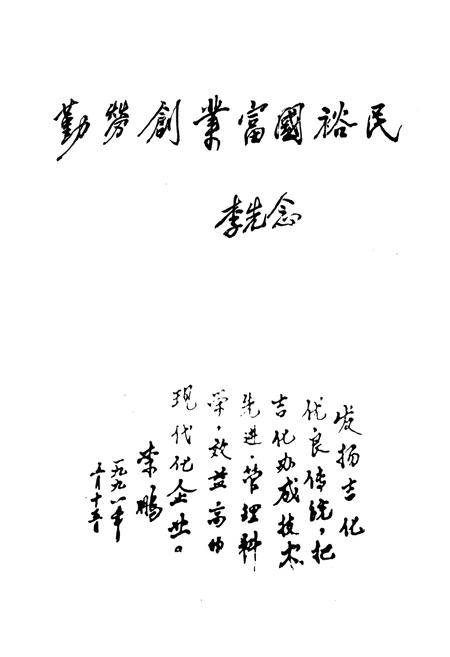 勤勞創業富國裕民
李先念
发扬吉化
优良传统，把
吉化办成技术
先进、管理科
学、效益高的
现代化企业。
李鹏
一九九一年
月十五日